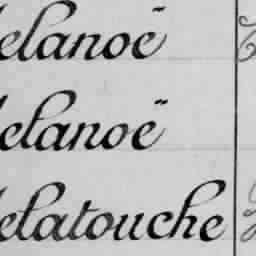 elanoë
elanoë
elatouche